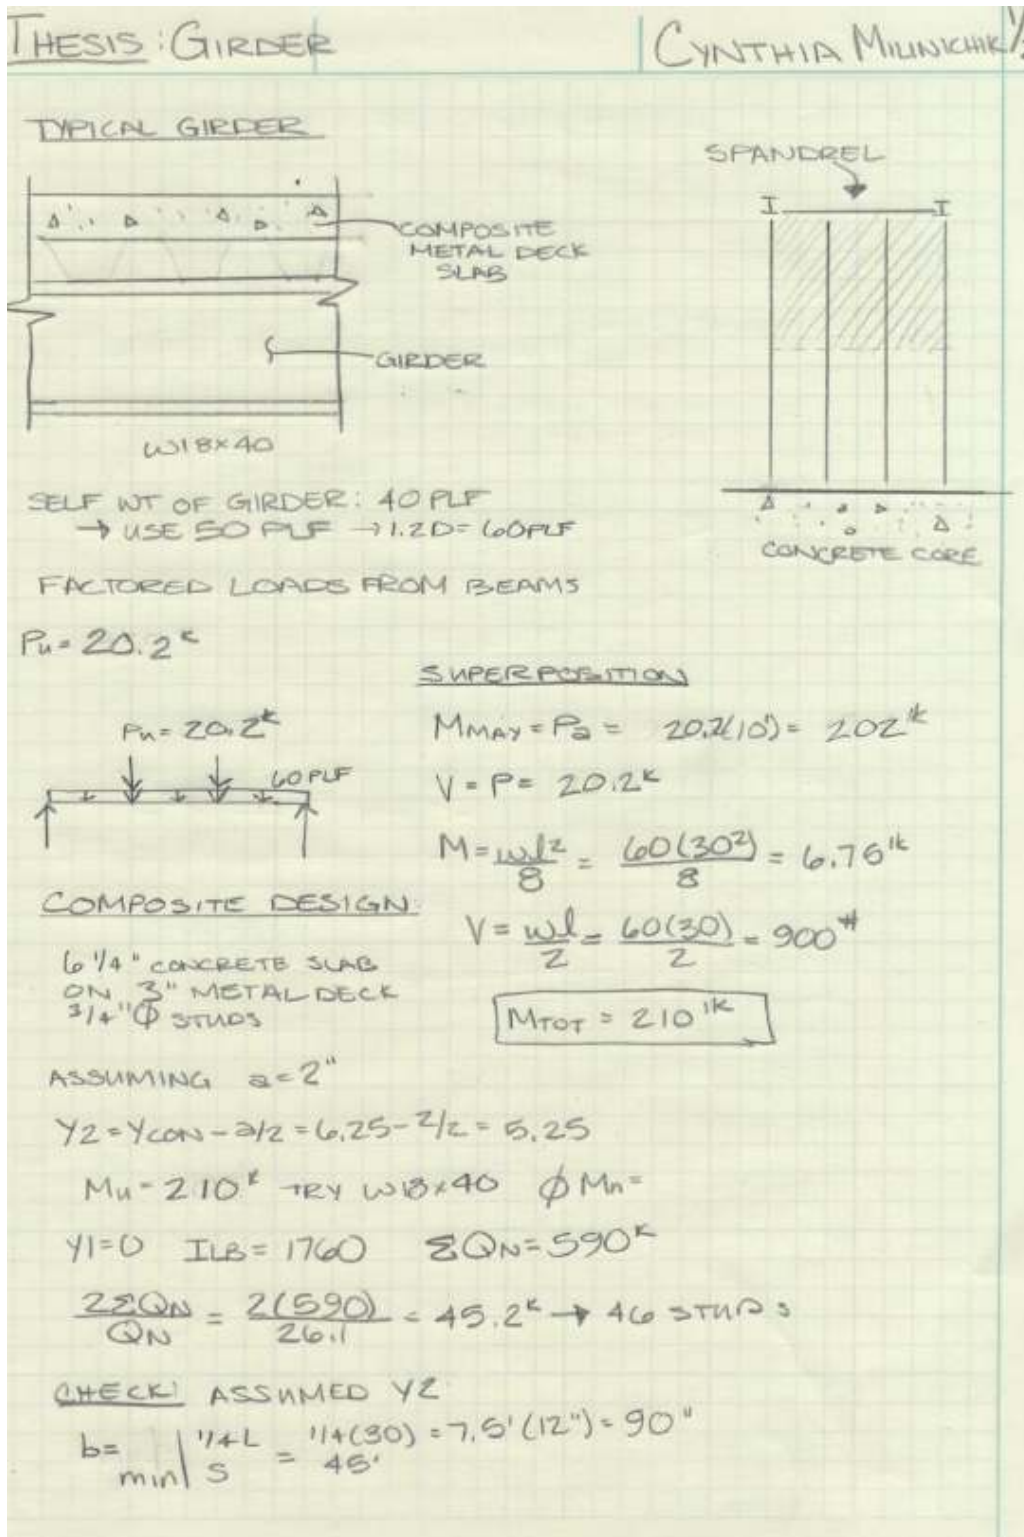 THESIS: GIRDER
CYNTHIA MILINICHIK
TYPICAL GIRDER
SPANDREL
COMPOSITE
METAL DECK
SLAB
GIRDER
W18×40
SELF WT OF GIRDER: 40 PLF
→ USE 50 PLF → 1.2D = 60PLF
CONCRETE CORE
FACTORED LOADS FROM BEAMS
Pu = 20.2ᵏ
SUPERPOSITION
Pu = 20.2ᵏ
60 PLF
MMAX = Pa = 20.2(10') = 202'ᵏ
V = P = 20.2ᵏ
M = wl²/8 = 60(30²)/8 = 6.75'ᵏ
V = wl/2 = 60(30)/2 = 900#
MTOT = 210'ᵏ
COMPOSITE DESIGN:
6 1/4" CONCRETE SLAB
ON 3" METAL DECK
3/4"Φ STUDS
ASSUMING a=2"
Y2 = YCON - a/2 = 6.25 - 2/2 = 5.25
Mu = 210ᵏ TRY W18×40 φMn =
Y1=0 ILB = 1760 ΣQN = 590ᵏ
2ΣQN/QN = 2(590)/26.1 = 45.2ᵏ → 46 STUDS
CHECK! ASSUMED Y2
b= min | 1/4L = 1/4(30) = 7.5' (12") = 90"
S = 45'